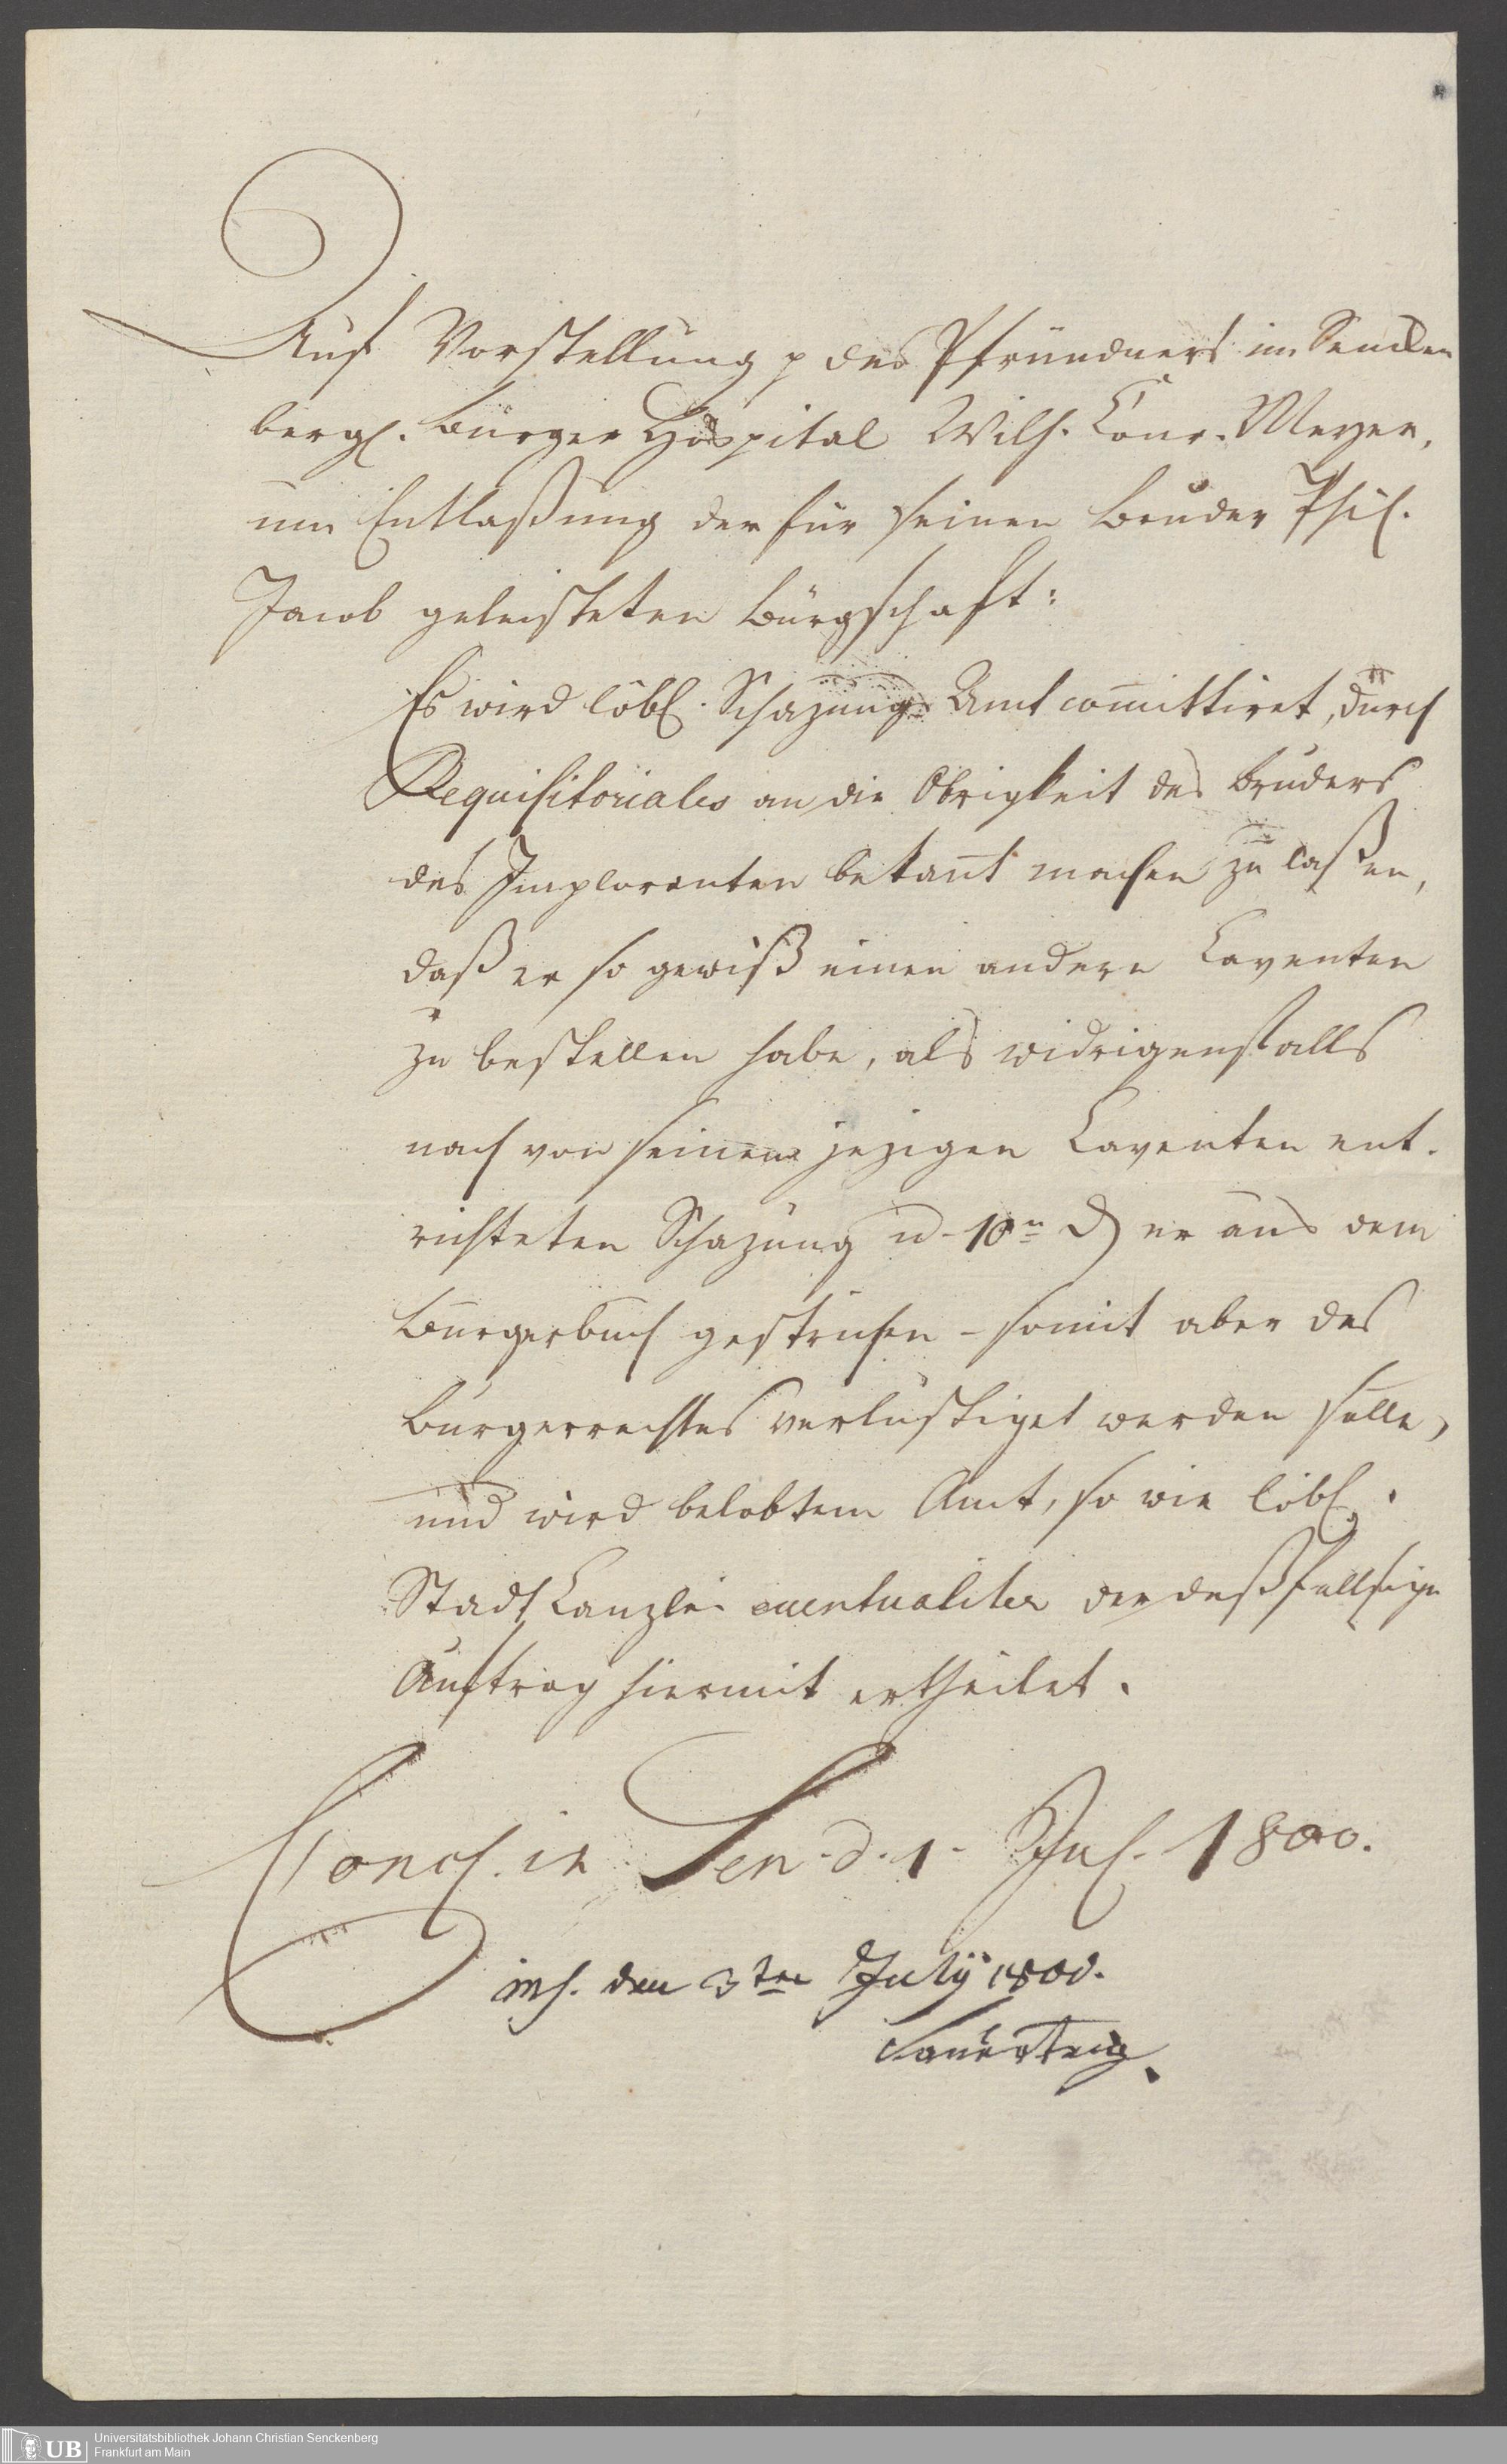 Auf Vorstellung p des Pfründners im Sencken
bergl. Bürger Hospital Wilh. Conr. Meyer,
um Entlaßung der für seinen Bruder Phil.
Jacob geleisteten Bürgschaft:
Es wird löbl. Schazungs Amt com̅ittiret, durch
Requisitoriales an die Obrigkeit des Bruders
des Imploranten bekan̅t machen zu laßen,
daß er so gewiß einen andern Caventen
zu bestellen habe, als widrigenfalls
nach von seinem jezigen Caventen ent-
richteten Schazung u. 10n ₰ er aus dem
Bürgerbuch gestrichen - somit aber des
Bürgerrechtes verlustiget werden solle,
und wird belobtem Amt, so wie löbl.
Stadt Canzlei eventualiter der deßfallsige
Auftrag hiermit ertheilet.
Concl. in Sen. d. 1. Jul. 1800.
ins. den 3ten July 1800.
Sauerteig
Universitätsbibliothek Johann Christian Senckenberg
Frankfurt am Main
UB